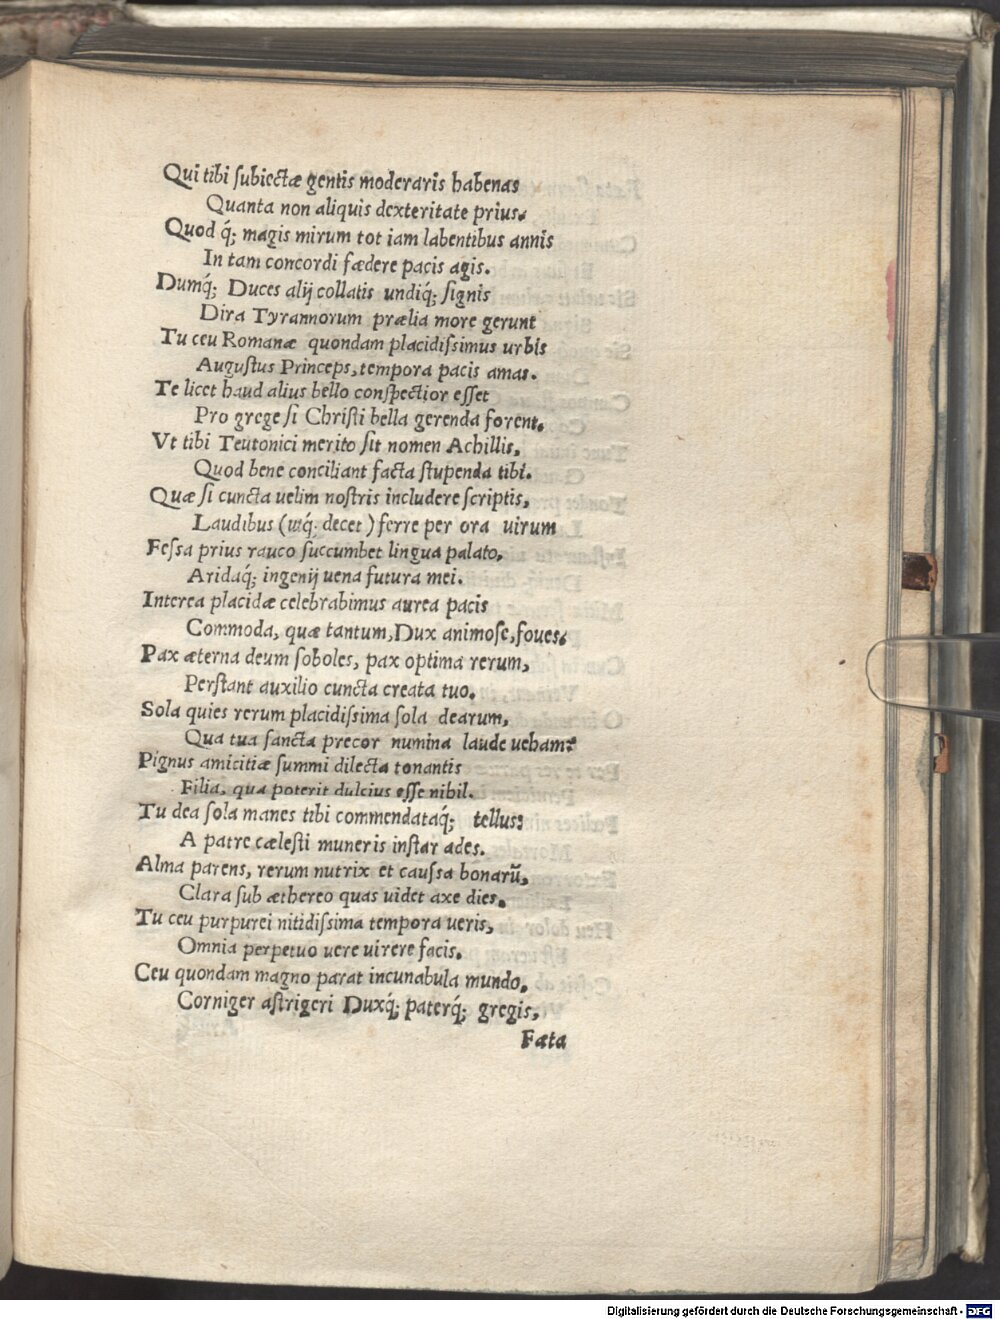 Qui tibi ſubiectæ gentis moderaris habenas
Quanta non aliquis dexteritate prius.
Quod q́; magis mirum tot iam labentibus annis
In tam concordi fædere pacis agis.
Dumq́; Duces alij collatis undiq́; ſignis
Dira Tyrannorum prælia more gerunt
Tu ceu Romanæ quondam placidiſsimus urbis
Auguſtus Princeps, tempora pacis amas.
Te licet haud alius bello conſpectior eſſet
Pro grege ſi Chriſti bella gerenda forent.
Vt tibi Teutonici merito ſit nomen Achillis,
Quod bene conciliant facta ſtupenda tibi.
Quæ ſi cuncta uelim noſtris includere ſcriptis,
Laudibus (utq́; decet) ferre per ora uirum
Feſsa prius rauco ſuccumbet lingua palato,
Aridaq́; ingenij uena futura mei.
Interea placidæ celebrabimus aurea pacis
Commoda, quæ tantum, Dux animoſe, foues.
Pax æterna deum ſoboles, pax optima rerum,
Perſtant auxilio cuncta creata tuo.
Sola quies rerum placidiſsima ſola dearum,
Qua tua ſancta precor numina laude ueham?
Pignus amicitiæ ſummi dilecta tonantis
Filia, qua poterit dulcius eſſe nihil.
Tu dea ſola manes tibi commendataq́; tellus:
A patre cæleſti muneris inſtar ades.
Alma parens, rerum nutrix et cauſsa bonarũ,
Clara ſub æthereo quas uidet axe dies.
Tu ceu purpurei nitidiſsima tempora ueris,
Omnia perpetuo uere uirere facis.
Ceu quondam magno parat incunabula mundo,
Corniger aſtrigeri Duxq́; paterq́; gregis,
Fæta
Digitalisierung gefördert durch die Deutsche Forschungsgemeinschaft - DFG